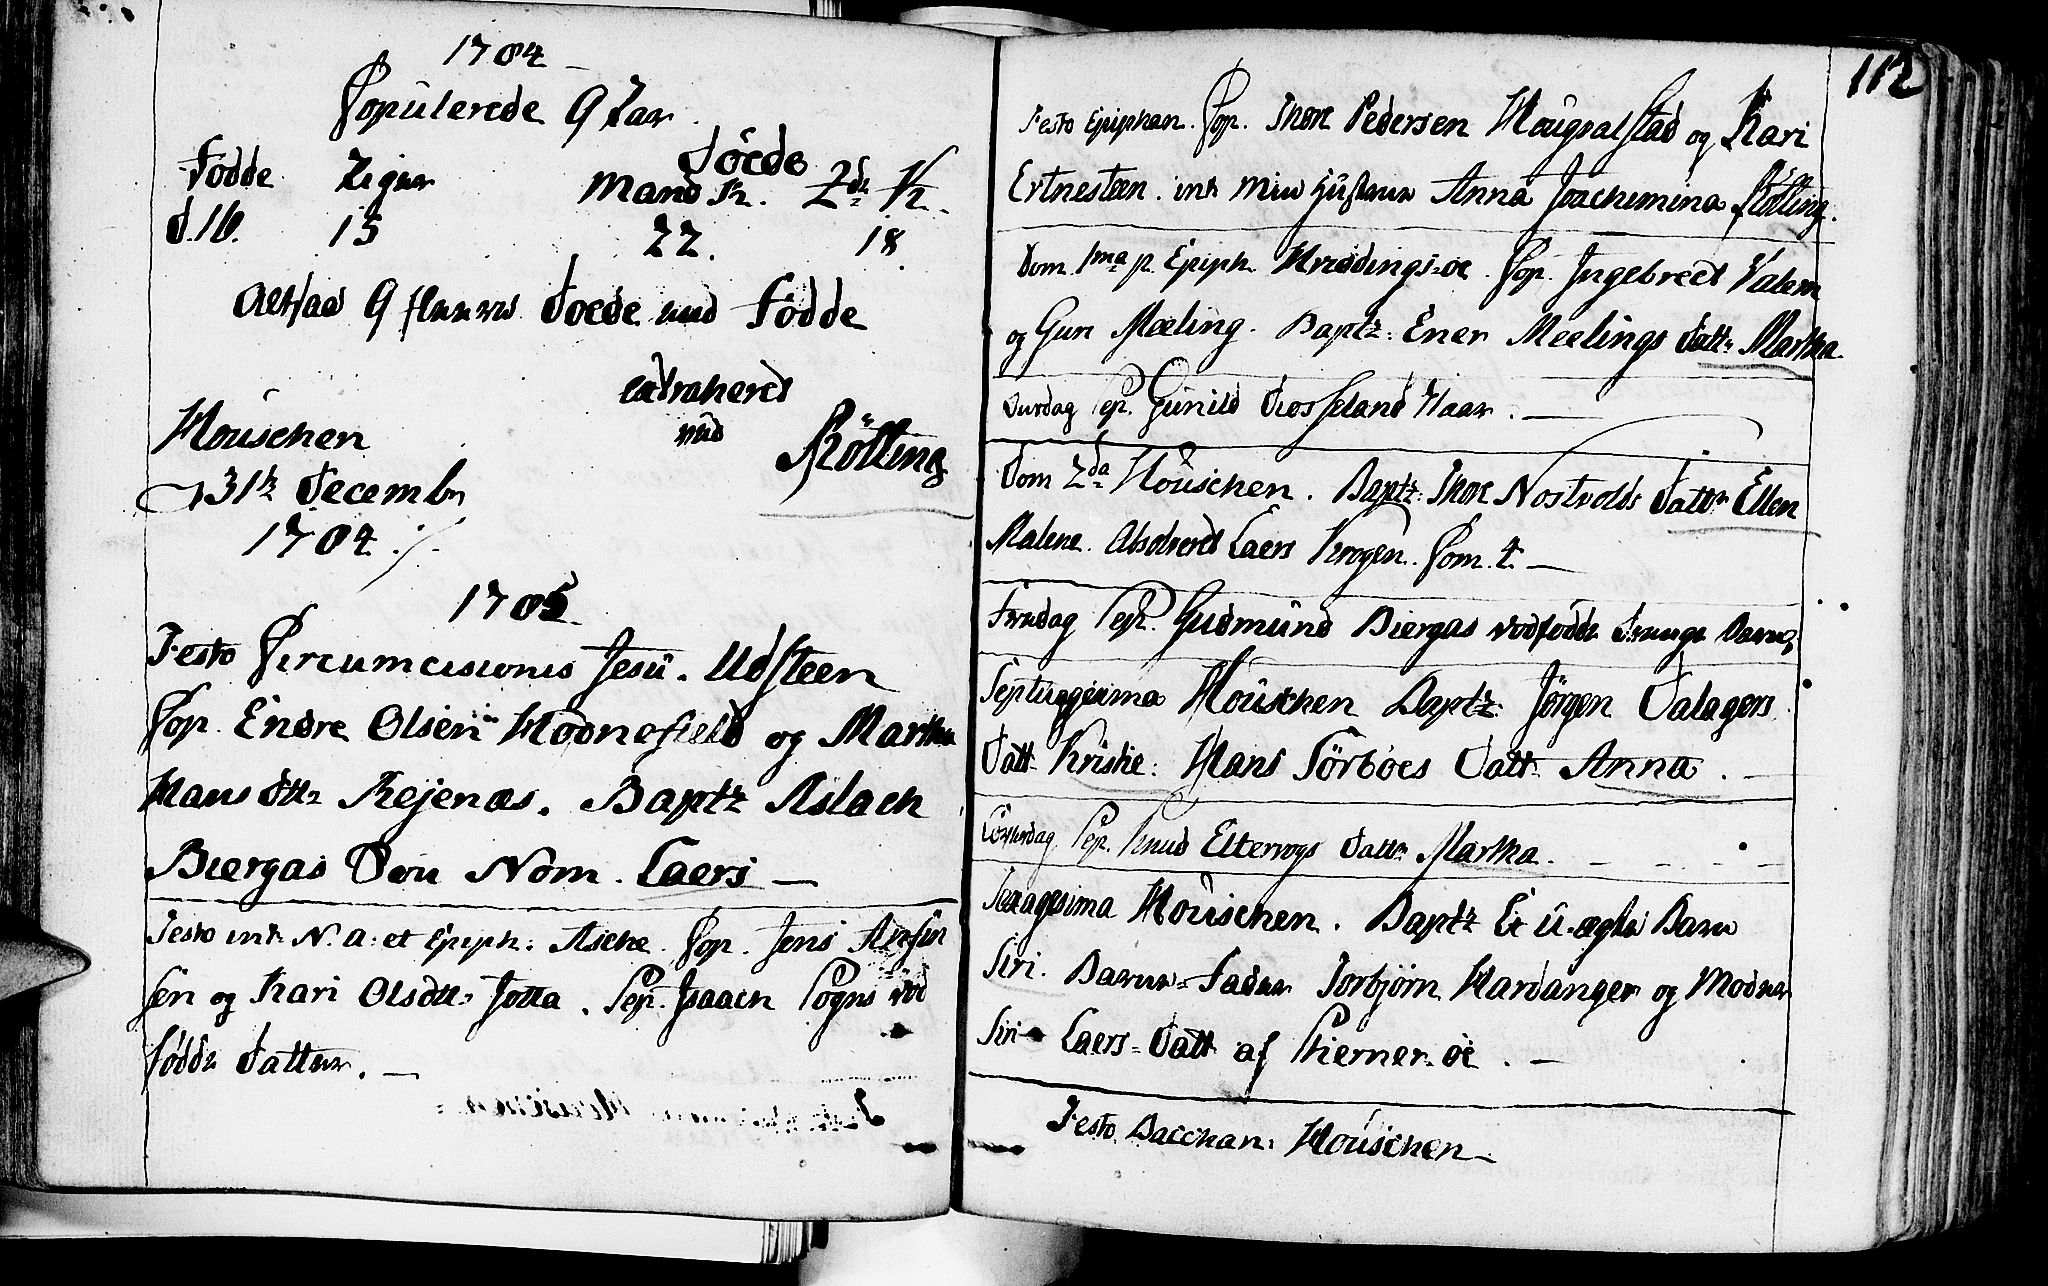 1704
Copulerede 9 Par.
Døede
Fødde Piger Mand K. Qde K.
D. 16. 15 22. 18.
Altsaa 9 fleere Døede end Fødde
extraheret
Houschen ved
Rölling
31te Decembr
1704 ./.
1705
Festo Circumcisionis Jesu. Udsteen
Cop. Endre Olsen Hodnefield og Martha
Hans Dttr Rejenæs. Baptz Aslach
Biergas Søn Nom. Laers —
Festo int. N. a. et Epiph: Asche. Cop. Jens Anfin
sen og Kari Olsdttr Jotta. Sep. Isaach Sogns död
födde Datter. —
112
Festo Epiphan. Cop. Thore Pedersen Hougvalstad og Kari
Ertnesteen. int. min Hustrue Anna Joachimina Rölling.
Dom 1ma p. Epiph. Hvidingsøe. Cop. Ingebrect Valem
og Gun Meeling. Baptz: Ener Meelings Dattr Martha.
Gunild Tosseland Haar. —
Dom 2da Houschen. Baptz: Thore Nostvolds Dattr Ellen
Malene. Absolveret Laers Krogen. Com. 4. —
Fredag Sep. Gudmund Biergas dødfødde Drenge Barn.
Septuagesima Houschen Baptz: Jørgen Dalagers
Datt. Kristie: Hans Sörböes Datt. Anna. —
Löverdag. Sep. Knud Eltervogs Dattr Martha. — — — —
Sexagesima Houschen. Baptz Et u-ægte Barn
Siri. Barne-Fader Torbjörn Hardanger og Moder
Siri Laers-Datt af Kierner-øe. —
Festo Bacchan: Houschen —